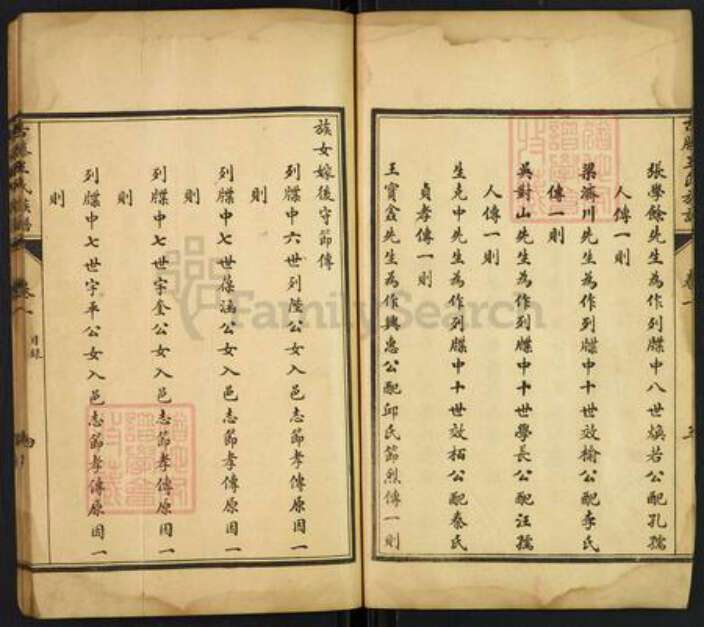 張學餘先生為作列牒中八世煥若公配孔孺
人傳一則
梁濟川先生為作列牒中十世效榆公配李氏
傳一則
吳對山先生為作列牒中十世學長公配汪孺
人傳一則
生克中先生為作列牒中十世效栢公配秦氏
貞孝傳一則
王寶鑫先生為作興惠公配邱氏節烈傳一則
族女嫁後守節傳
列牒中六世列陞公女入邑志節孝傳原因一
則
列牒中七世葆涵公女入邑志節孝傳原因一
則
列牒中七世字奎公女入邑志節孝傳原因一
則
列牒中七世字平公女入邑志節孝傳原因一
則
卷一
目錄
FamilySearch